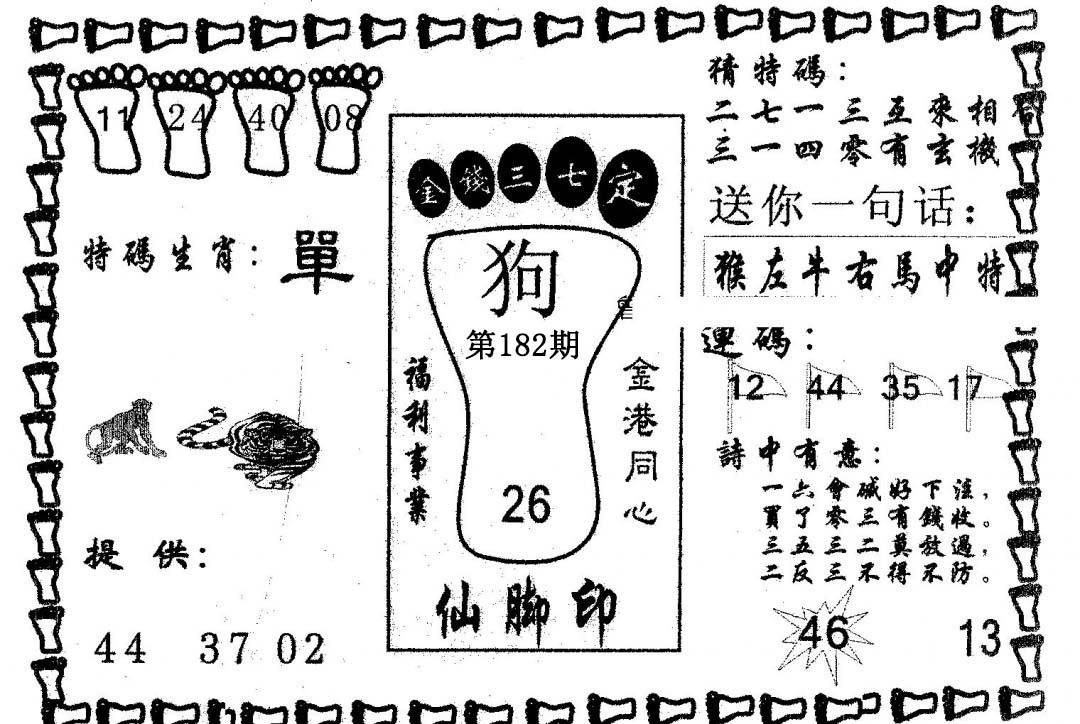 11 24 40 08
特碼生肖：單
提供：
44 37 02
金錢三七定
狗
第182期
福利事業
金港同心
26
仙脚印
猜特碼：
二七一三互來相合
三一四零有玄機
送你一句话：
猴左牛右馬中特
連碼：
12 44 35 17
詩中有意：
一六會碱好下注，
買了零三有錢收。
三五三二莫放過，
二反三不得不防。
46 13